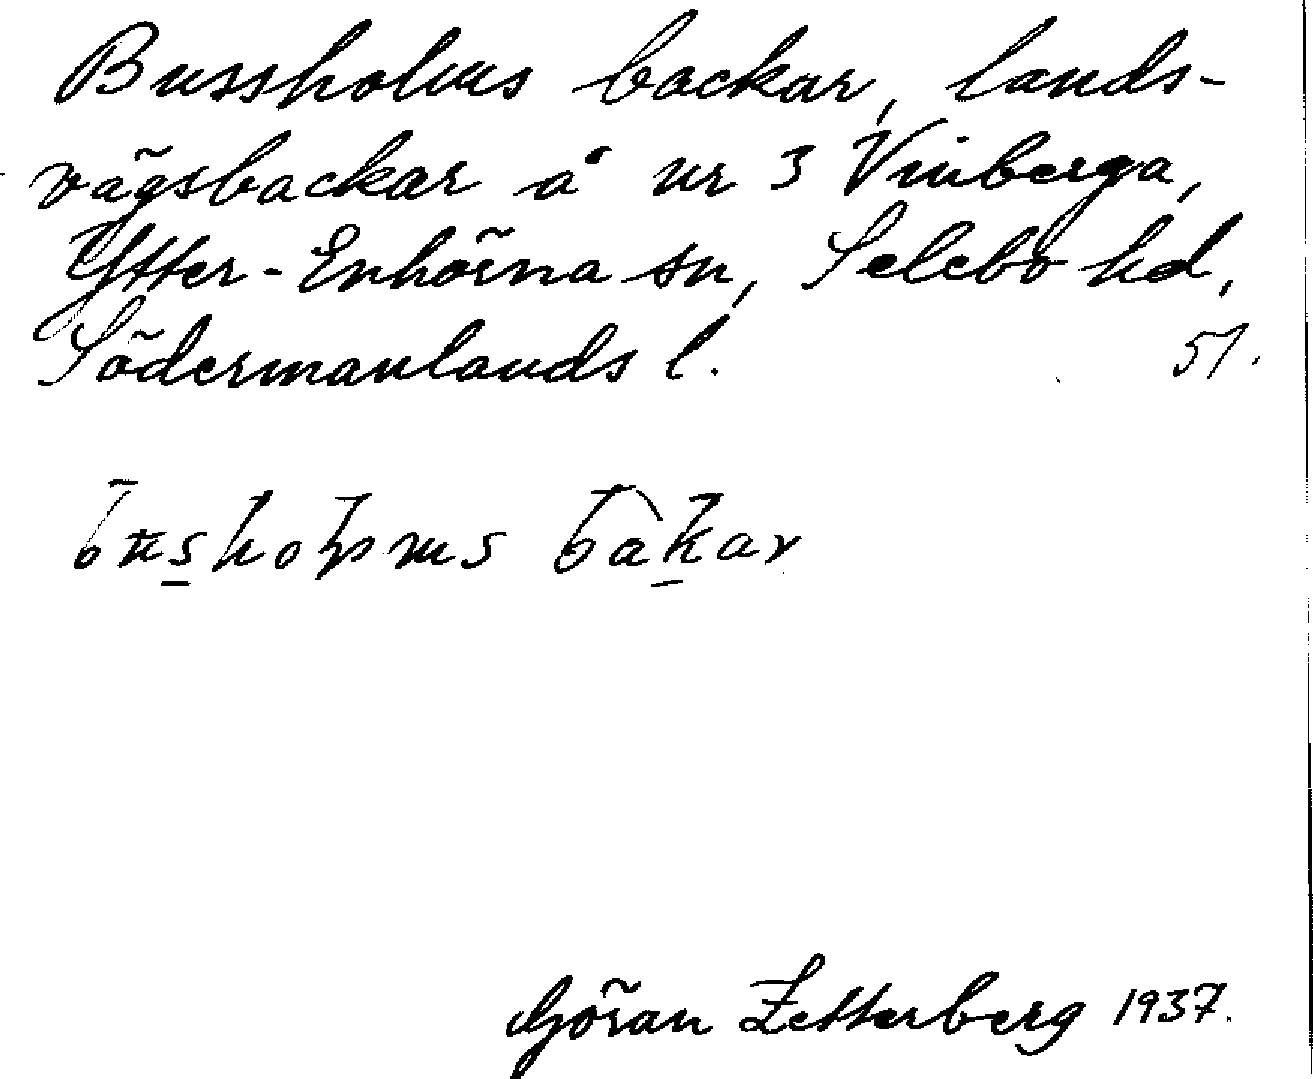 Bussholms backar, lands-
vägsbackar å nr 3 Vinberga,
Ytter-Enhörna sn, Selebo hd,
Södermanlands l. 51.
Göran Zetterberg 1937.